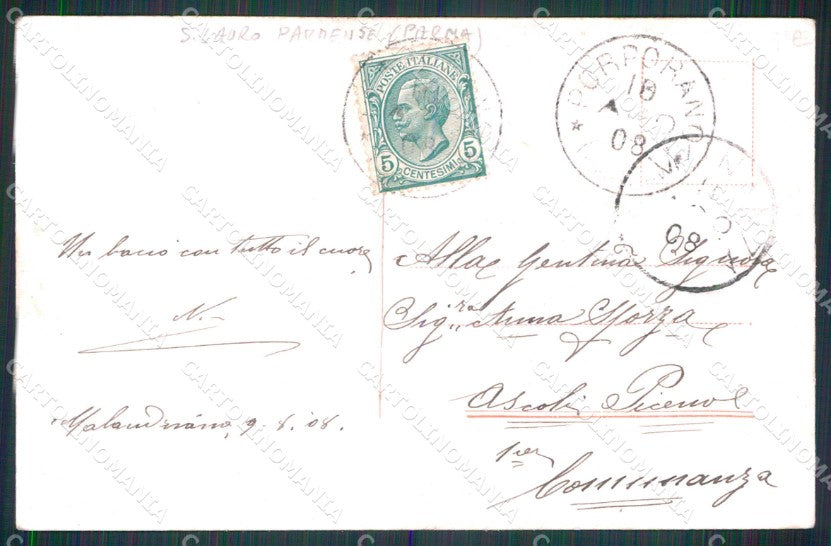 S. LAURO PARMENSE (PARMA)
POSTE ITALIANE
5 CENTESIMI 5
PORPORANO
10
08
08
Un bacio con tutto il cuore
N.
Malandriano, 9.8.08.
Alla Gentma Signora
Sig.ra Anna Sforza
Ascoli Piceno
per
Comunanza
CARTOLINOMANIA